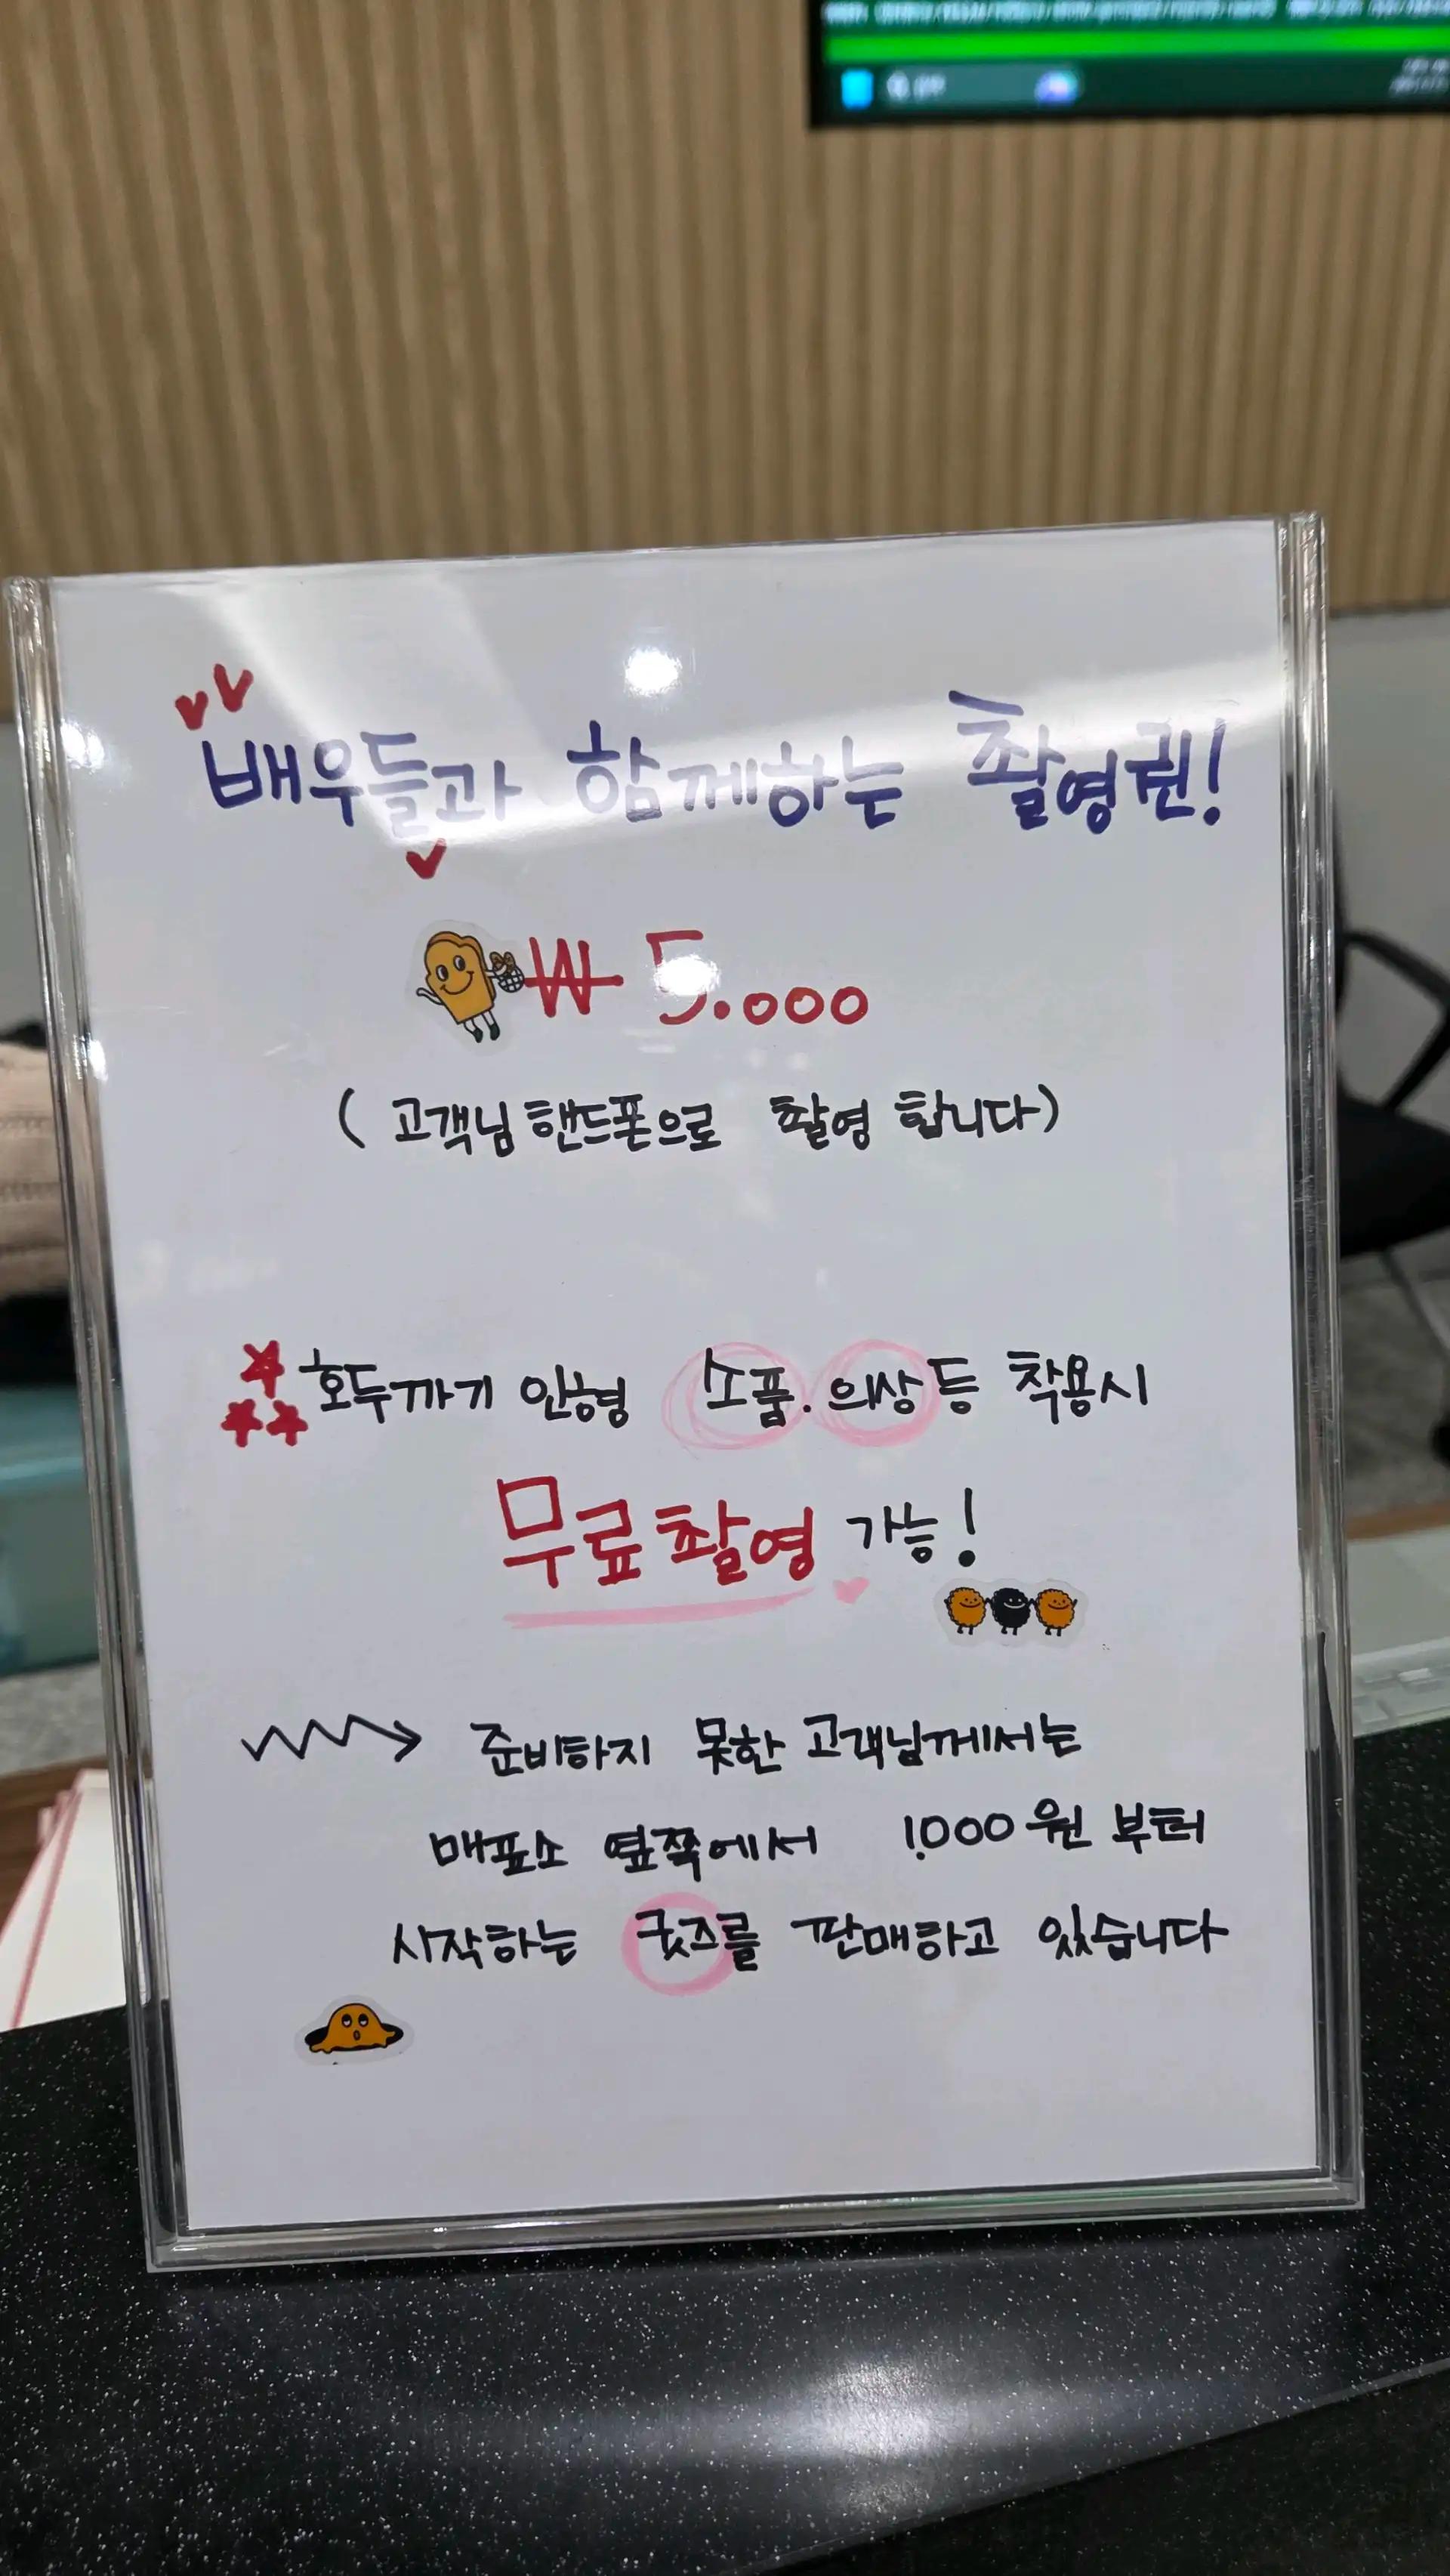 배우들과 함께하는 촬영권!
₩ 5.000
( 고객님 핸드폰으로 촬영 합니다)
호두까기 인형 소품. 의상 등 착용시
무료촬영 가능!
준비하지 못한 고객님께서는
매표소 옆쪽에서 1.000원 부터
시작하는 굿즈를 판매하고 있습니다